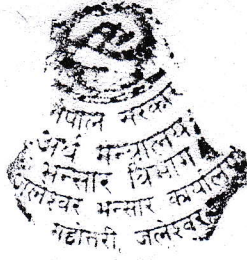 नेपाल सरकार
अर्थ मन्त्रालय
भन्सार विभाग
जलेश्वर भन्सार कार्यालय
महोत्तरी, जलेश्वर